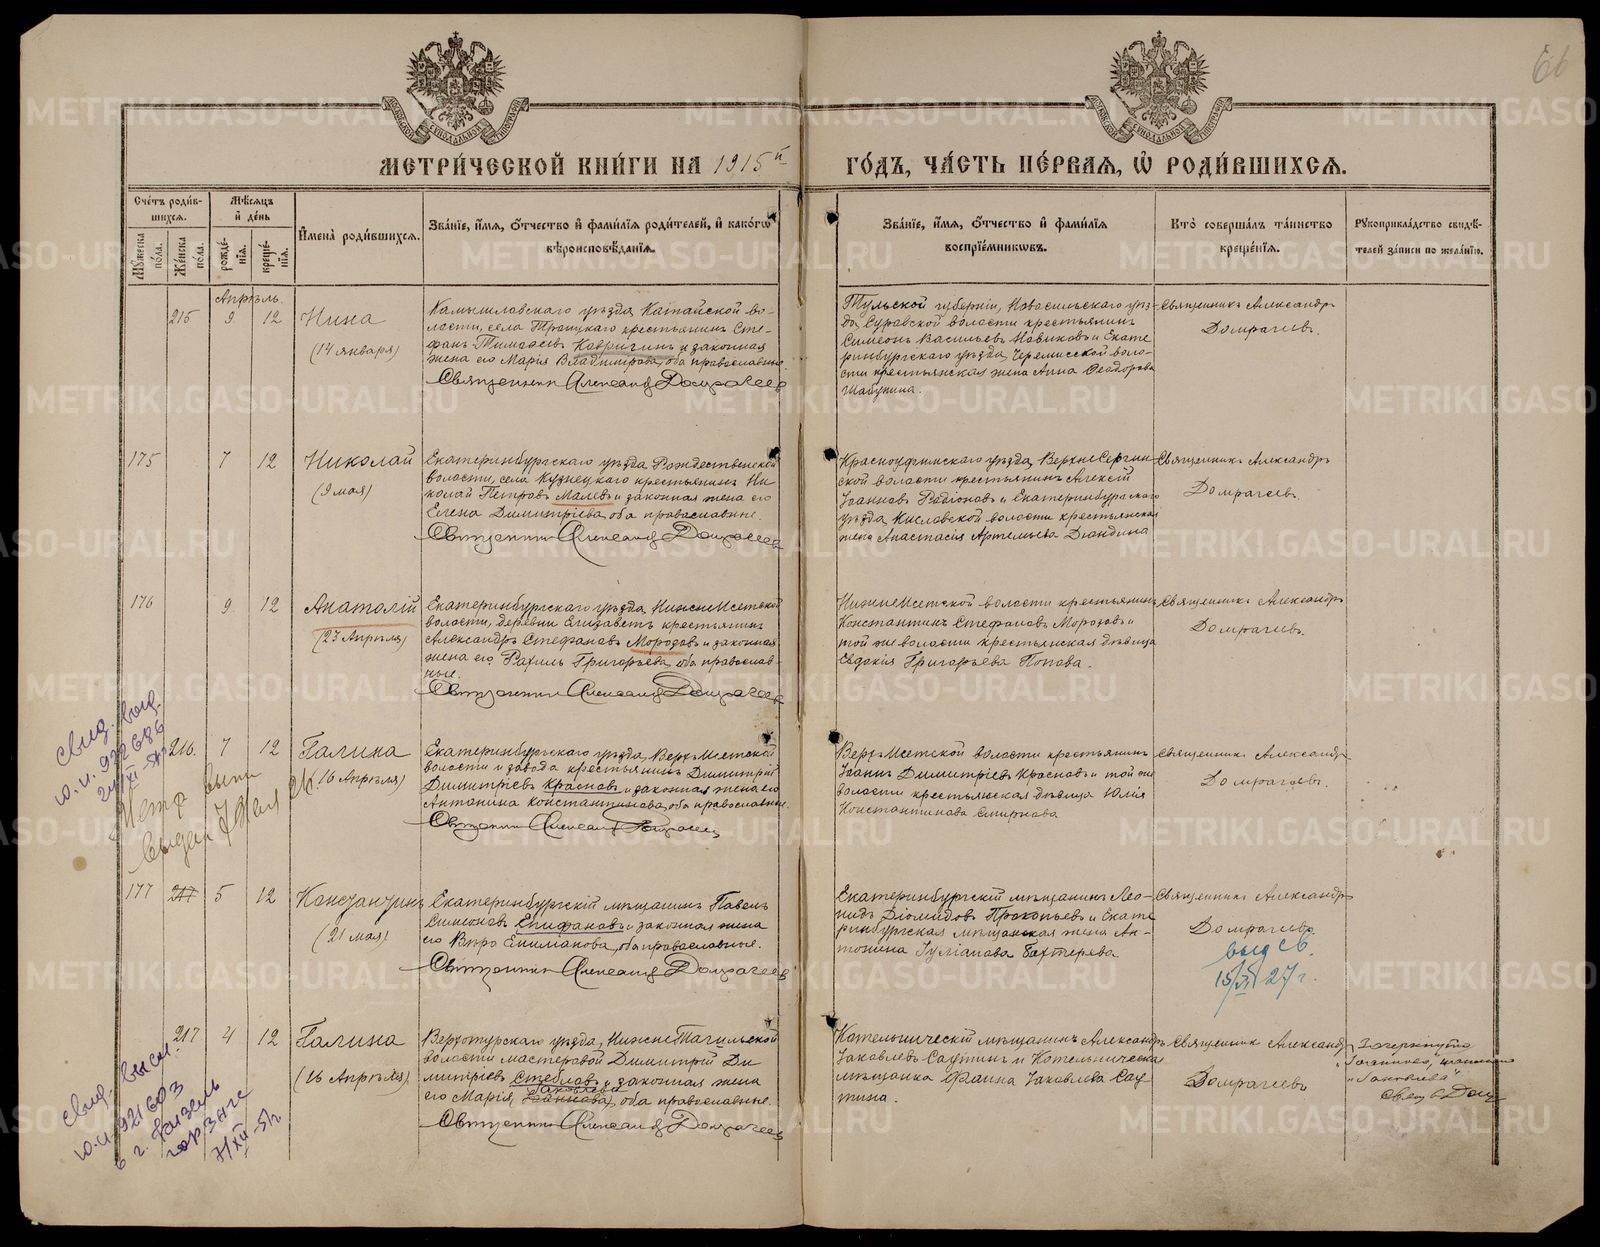 66
МЕТРИ́ЧЕСКОЙ КНИ́ГИ НА 1915й
ГО́ДЪ, ЧА́СТЬ ПЕ́РВАЯ, Ѽ РОДИ́ВШИХСЯ.
Сче́тъ роди́в-
шихся.
Мѣ́сяцъ
и́ де́нь
Мꙋ́жеска
по́ла.
Же́нска
по́ла.
рожде́-
нїя.
креще́-
нїя.
И҆мена̀ роди́вшихся.
Зва́нїе, и҆́мя, ѻ҆́тчество и҆ фами́лїя роди́телей, и҆ како́гѡ
вѣроисповѣ́данїя.
Зва́нїе, и҆́мя, ѻ҆́тчество и҆ фами́лїя
воспрїе́мникѡвъ.
Кто̀ соверша́лъ та́инство
креще́нїя.
Рꙋкоприкла́дство свидѣ́-
телей за́писи по жела́нїю.
Апрѣль.
215 9 12 Нина
(14 января)
Камышловскаго уѣзда Катайской во-
лости, села Троицкаго крестьянинъ Сте-
фанъ Тимоѳеевъ Кавригинъ и законная
жена его Марія Владимірова, оба православные.
Священникъ Александръ Домрачеевъ
Тульской губерніи, Новосильскаго уѣз-
да, Суровской волости крестьянинъ
Симеонъ Васильевъ Новиковъ и Екате
ринбургскаго уѣзда, Черемисской воло-
сти крестьянская жена Анна Ѳеодорова
Шабунина.
Священникъ Александръ
Домрачеевъ.
175 7 12 Николай
(9 мая)
Екатеринбургскаго уѣзда Рождественской
волости, села Кузнецкаго крестьянинъ Ни
колай Петровъ Малевъ и законная жена его
Елена Димитріева, оба православные.
Священникъ Александръ Домрачеевъ
Красноуфимскаго уѣзда, Верхне Сергин-
ской волости крестьянинъ Алексій
Іоанновъ Радіоновъ и Екатеринбургскаго
уѣзда Кисловской волости крестьянская
жена Анастасія Артемьева Дюндина
Священникъ Александръ
Домрачеевъ.
176 9 12 Анатолій
(23 Апрѣля)
Екатеринбургскаго уѣзда, Нижне Исетской
волости, деревни Елизаветъ крестьянинъ
Александръ Стефановъ Морозовъ и законная
жена его Рахиль Григорьева, оба православ-
ные.
Священникъ Александръ Домрачеевъ
Нижне Исетской волости крестьянинъ
Константинъ Стефановъ Морозовъ и
той же волости крестьянская дѣвица
Евдокія Григорьева Попова.
Священникъ Александръ
Домрачеевъ.
свид. выд.
Ю.И. 922686
216 7 12 Галина
(16 Апрѣля)
Екатеринбургскаго уѣзда, Верх Исетской
волости и завода крестьянинъ Димитрій
Димитріевъ Красновъ и законная жена его
Антонина Константинова, оба православные.
Священникъ Александръ Домрачеевъ
Верх Исетской волости крестьянинъ
Іоаннъ Димитріевъ Красновъ и той же
волости крестьянская дѣвица Юлія
Константинова Смирнова
Священникъ Александръ
Домрачеевъ.
177 217 5 12 Константинъ
(21 мая)
Екатеринбургскій мѣщанинъ Павелъ
Симеоновъ Епифановъ и законная жена
его Вѣра, оба православные.
Священникъ Александръ Домрачеевъ
Екатеринбургскій мѣщанинъ Лео-
нидъ Діомидовъ Прокопьевъ и Екате
ринбургская мѣщанская жена Ан-
тонина Іуліанова Бахтерева
Священникъ Александръ
Домрачеевъ
выд св.
15/VI 27 г.
217 4 12 Галина
(16 Апрѣля)
Верхотурскаго уѣзда, Нижне Тагильской
волости мастеровой Димитрій Ди
митріевъ Стебловъ и законная жена
Іаковлева
его Марія Іоаннова, оба православные.
Священникъ Александръ Домрачеевъ
Котельническій мѣщанинъ Александръ
Іаковлевъ Саутинъ и Котельническая
мѣщанка Фаина Іаковлева Сау
тина.
Священникъ Александръ
Домрачеевъ
Зачеркнуто
"Іоаннова", написано
"Іаковлева"
Свящ. А Дом
свид. высл.
Ю.И. 921603